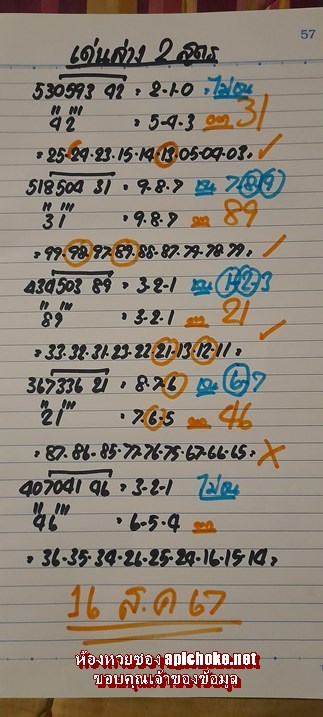 57
เด่นล่าง 2 สูตร
530593 42 = 2-1-0 = ไม่ชน
"42" = 5-4-3 ออก 31
= 25-24-23-15-14-13-05-04-03 = ✓
518504 31 = 9-8-7 ชน 7-8-9
"31" = 9-8-7 ออก 89
= 99-98-97-89-88-87-79-78-79 = ✓
434503 89 = 3-2-1 ชน 1-2-3
"89" = 3-2-1 ออก 21
= 33-32-31-23-22-21-13-12-11 = ✓
367336 21 = 8-7-6 ชน 6-7
"21" = 7-6-5 ออก 46
= 87-86-85-77-76-75-67-66-65 = X
407041 46 = 3-2-1 ไม่ชน
"46" = 6-5-4 ออก
= 36-35-34-26-25-24-16-15-14 =
16 ส.ค 67
ห้องหวยซอง apichoke.net
ขอบคุณเจ้าของข้อมูล